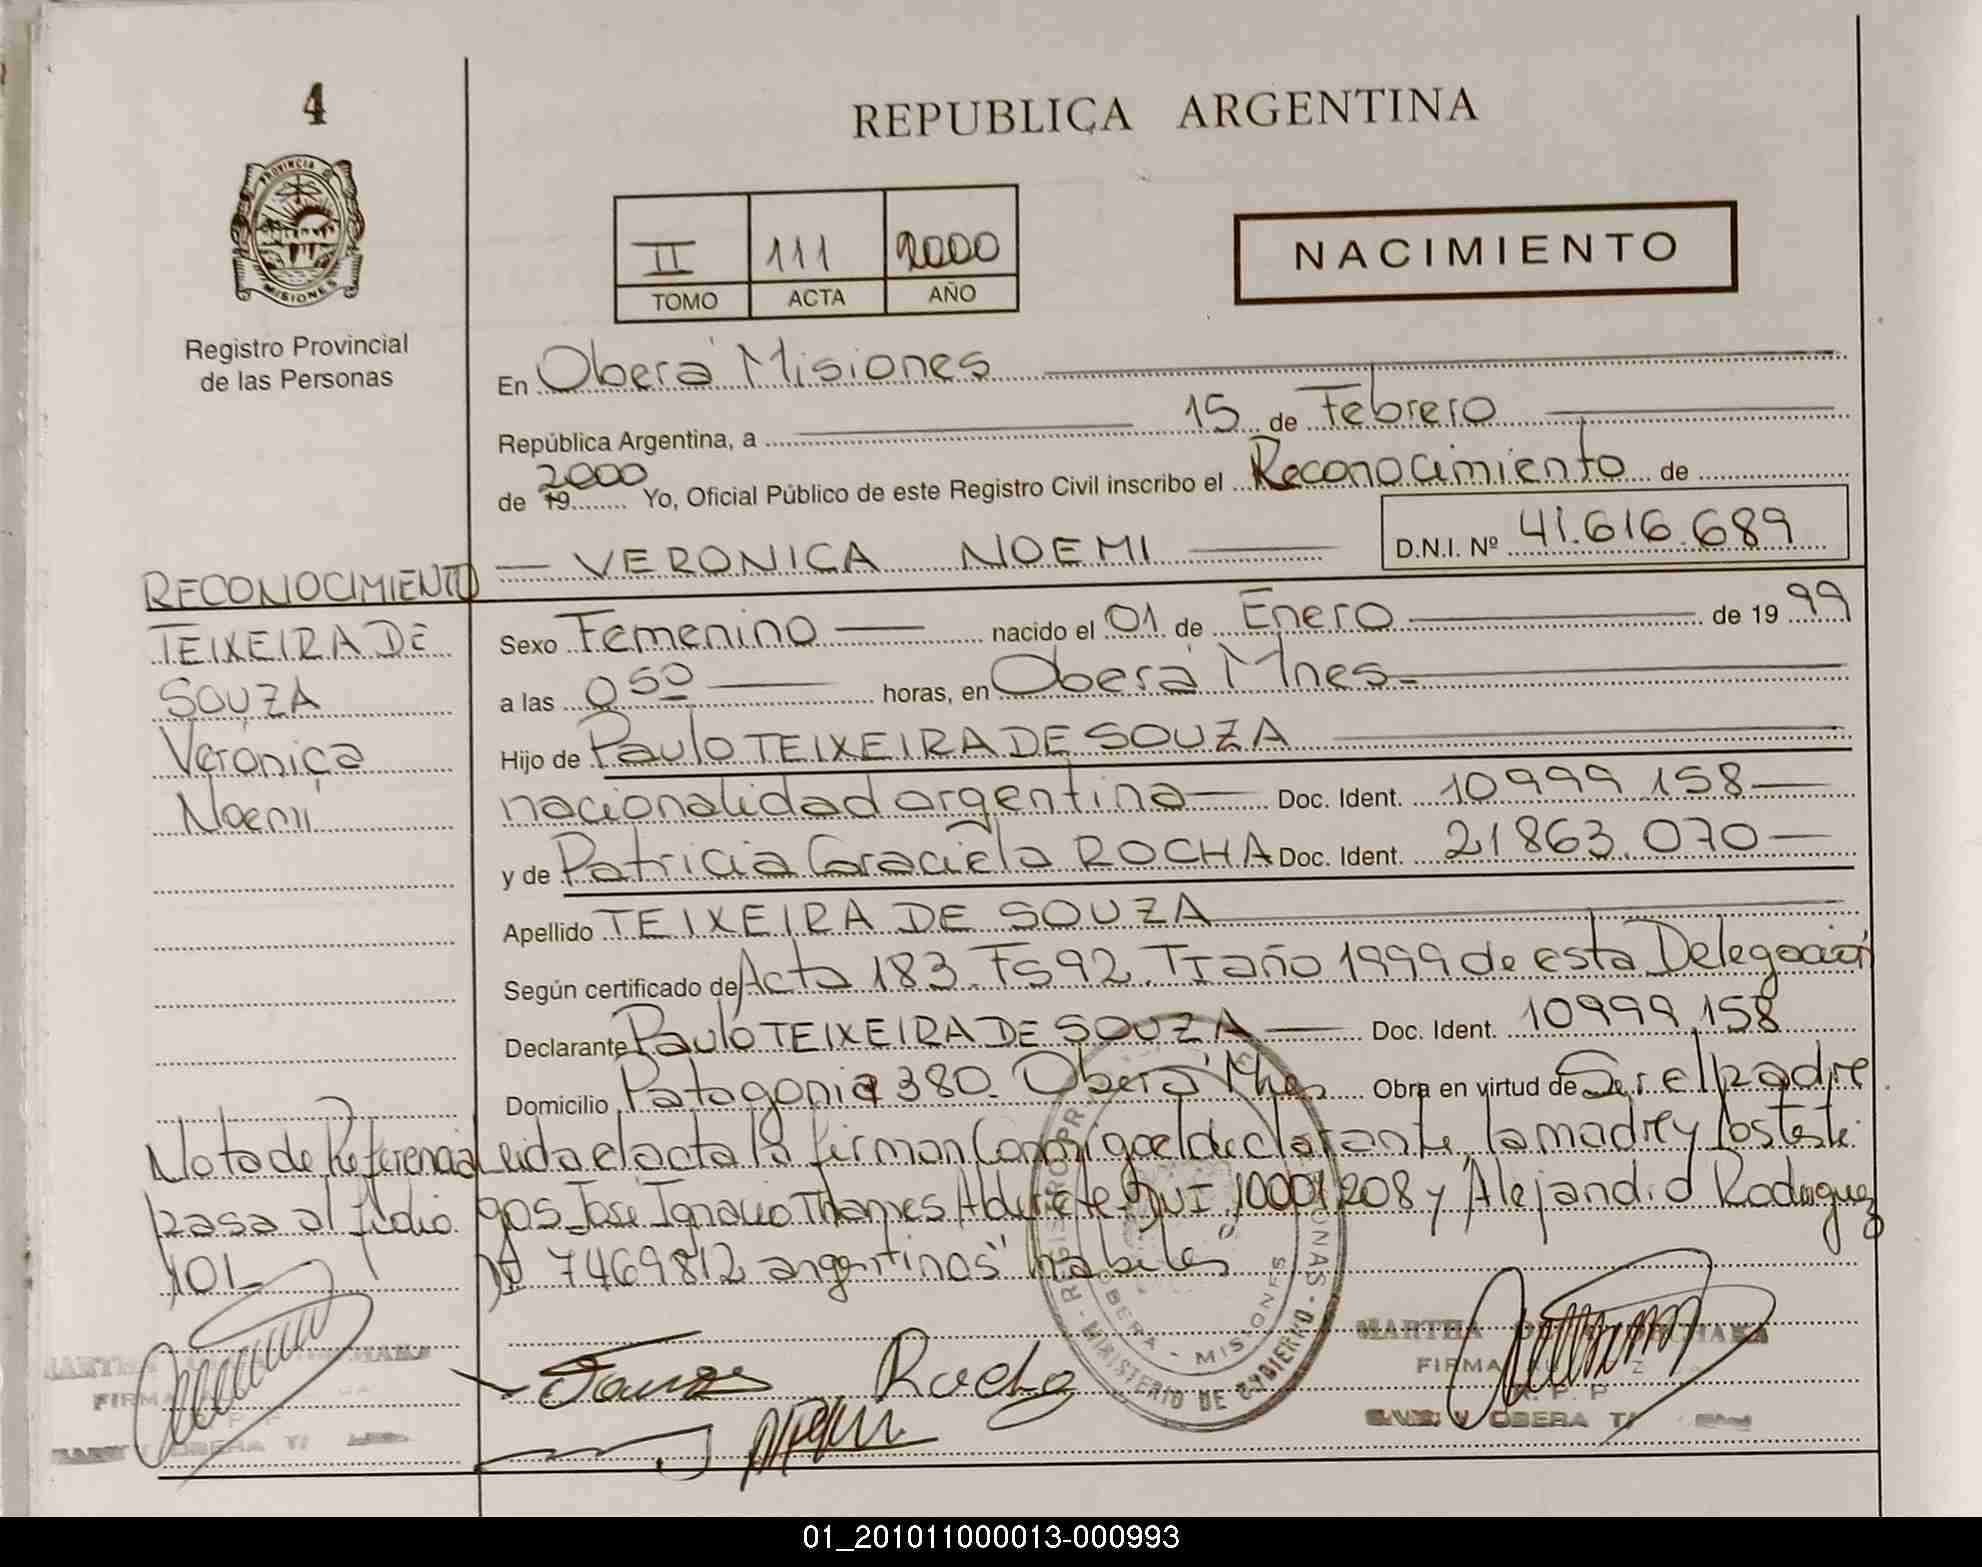 4
PROVINCIA
MISIONES
Registro Provincial
de las Personas
REPUBLICA ARGENTINA
II 111 2000
TOMO ACTA AÑO
NACIMIENTO
En Oberá Misiones
República Argentina, a 15 de Febrero
de 19 2000 Yo, Oficial Público de este Registro Civil inscribo el Reconocimiento de
VERONICA NOEMI D.N.I. Nº 41.616.689
RECONOCIMIENTO
TEIXEIRA DE
SOUZA
Verónica
Noemí
Sexo Femenino nacido el 01 de Enero de 19 99
a las 0 50 horas, en Oberá Mnes.
Hijo de Paulo TEIXEIRA DE SOUZA
nacionalidad argentina Doc. Ident. 10999 158
y de Patricia Graciela ROCHA Doc. Ident. 21863.070
Apellido TEIXEIRA DE SOUZA
Según certificado de Acta 183. Fs 92. TI año 1999 de esta Delegación
Declarante Paulo TEIXEIRA DE SOUZA Doc. Ident. 10999.158
Domicilio Patagonia 380. Oberá Mnes Obra en virtud de Ser el padre
Nota de Referencia
pasa al folio
101
Leida el acta la firman Conmigo el declarante, la madre y los testi
gos José Ignacio Thames Alderete DNI 10001208 y Alejandro Rodriguez
7469812 argentinos "habiles"
REGISTRO PR
OBERA - MISIONES
MINISTERIO DE GOBIERNO
Rocha
MARTHA
FIRMA
OBERA
MARTHA
FIRMA
OBERA
01_201011000013-000993